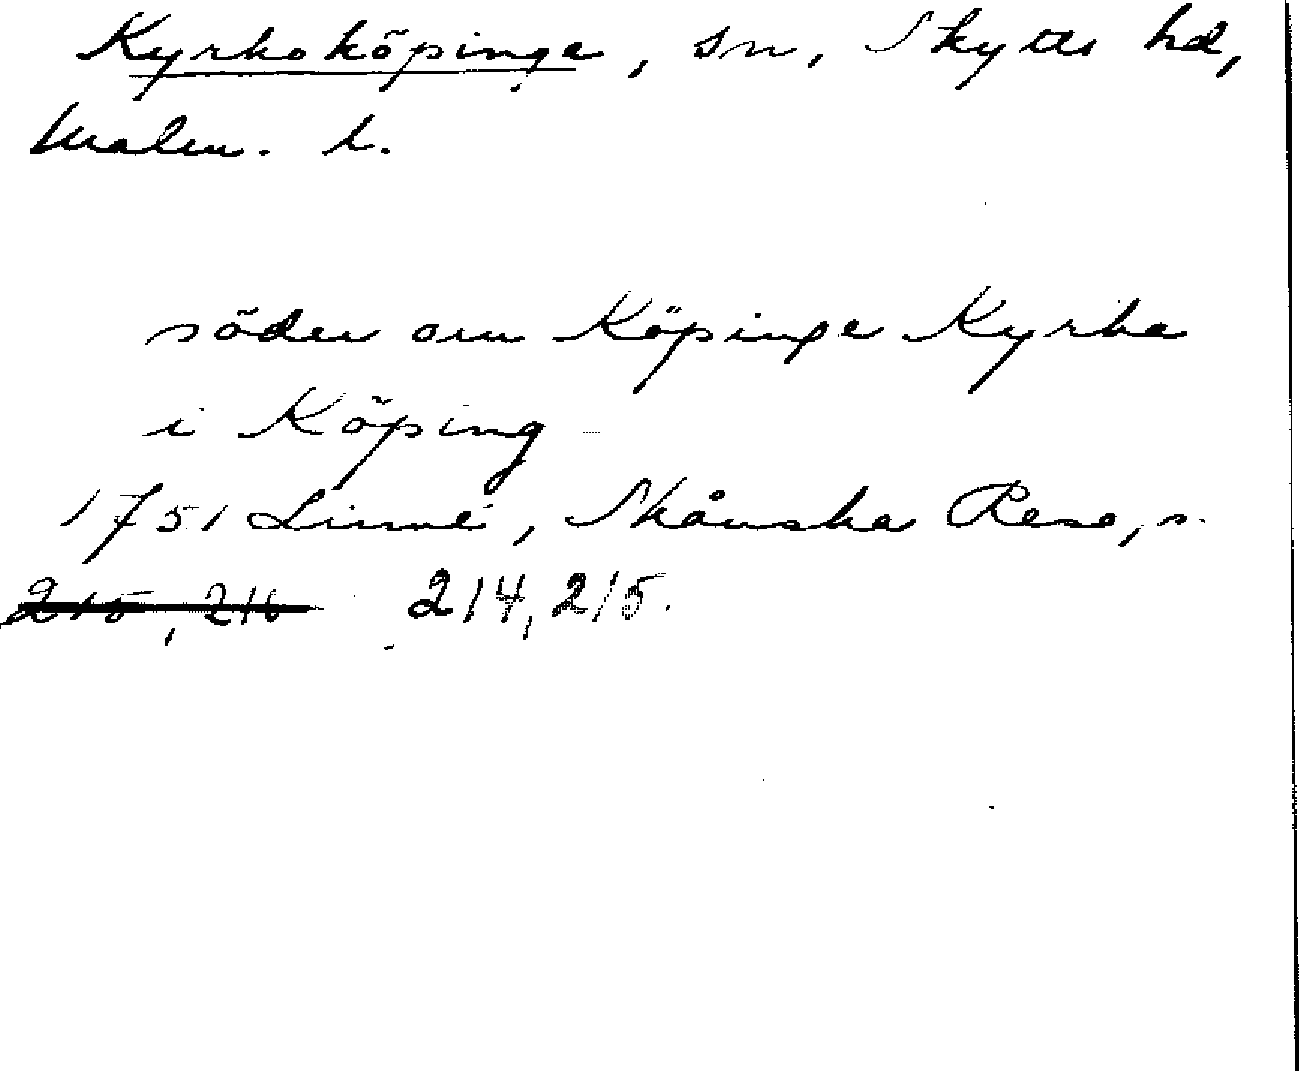 Kyrkoköpinge, sn, Skytts hd,
Malm. l.
söder om Köpinge Kyrka
i Köping
1751 Linné, Skånska Resa, s.
215, 216 214, 215.